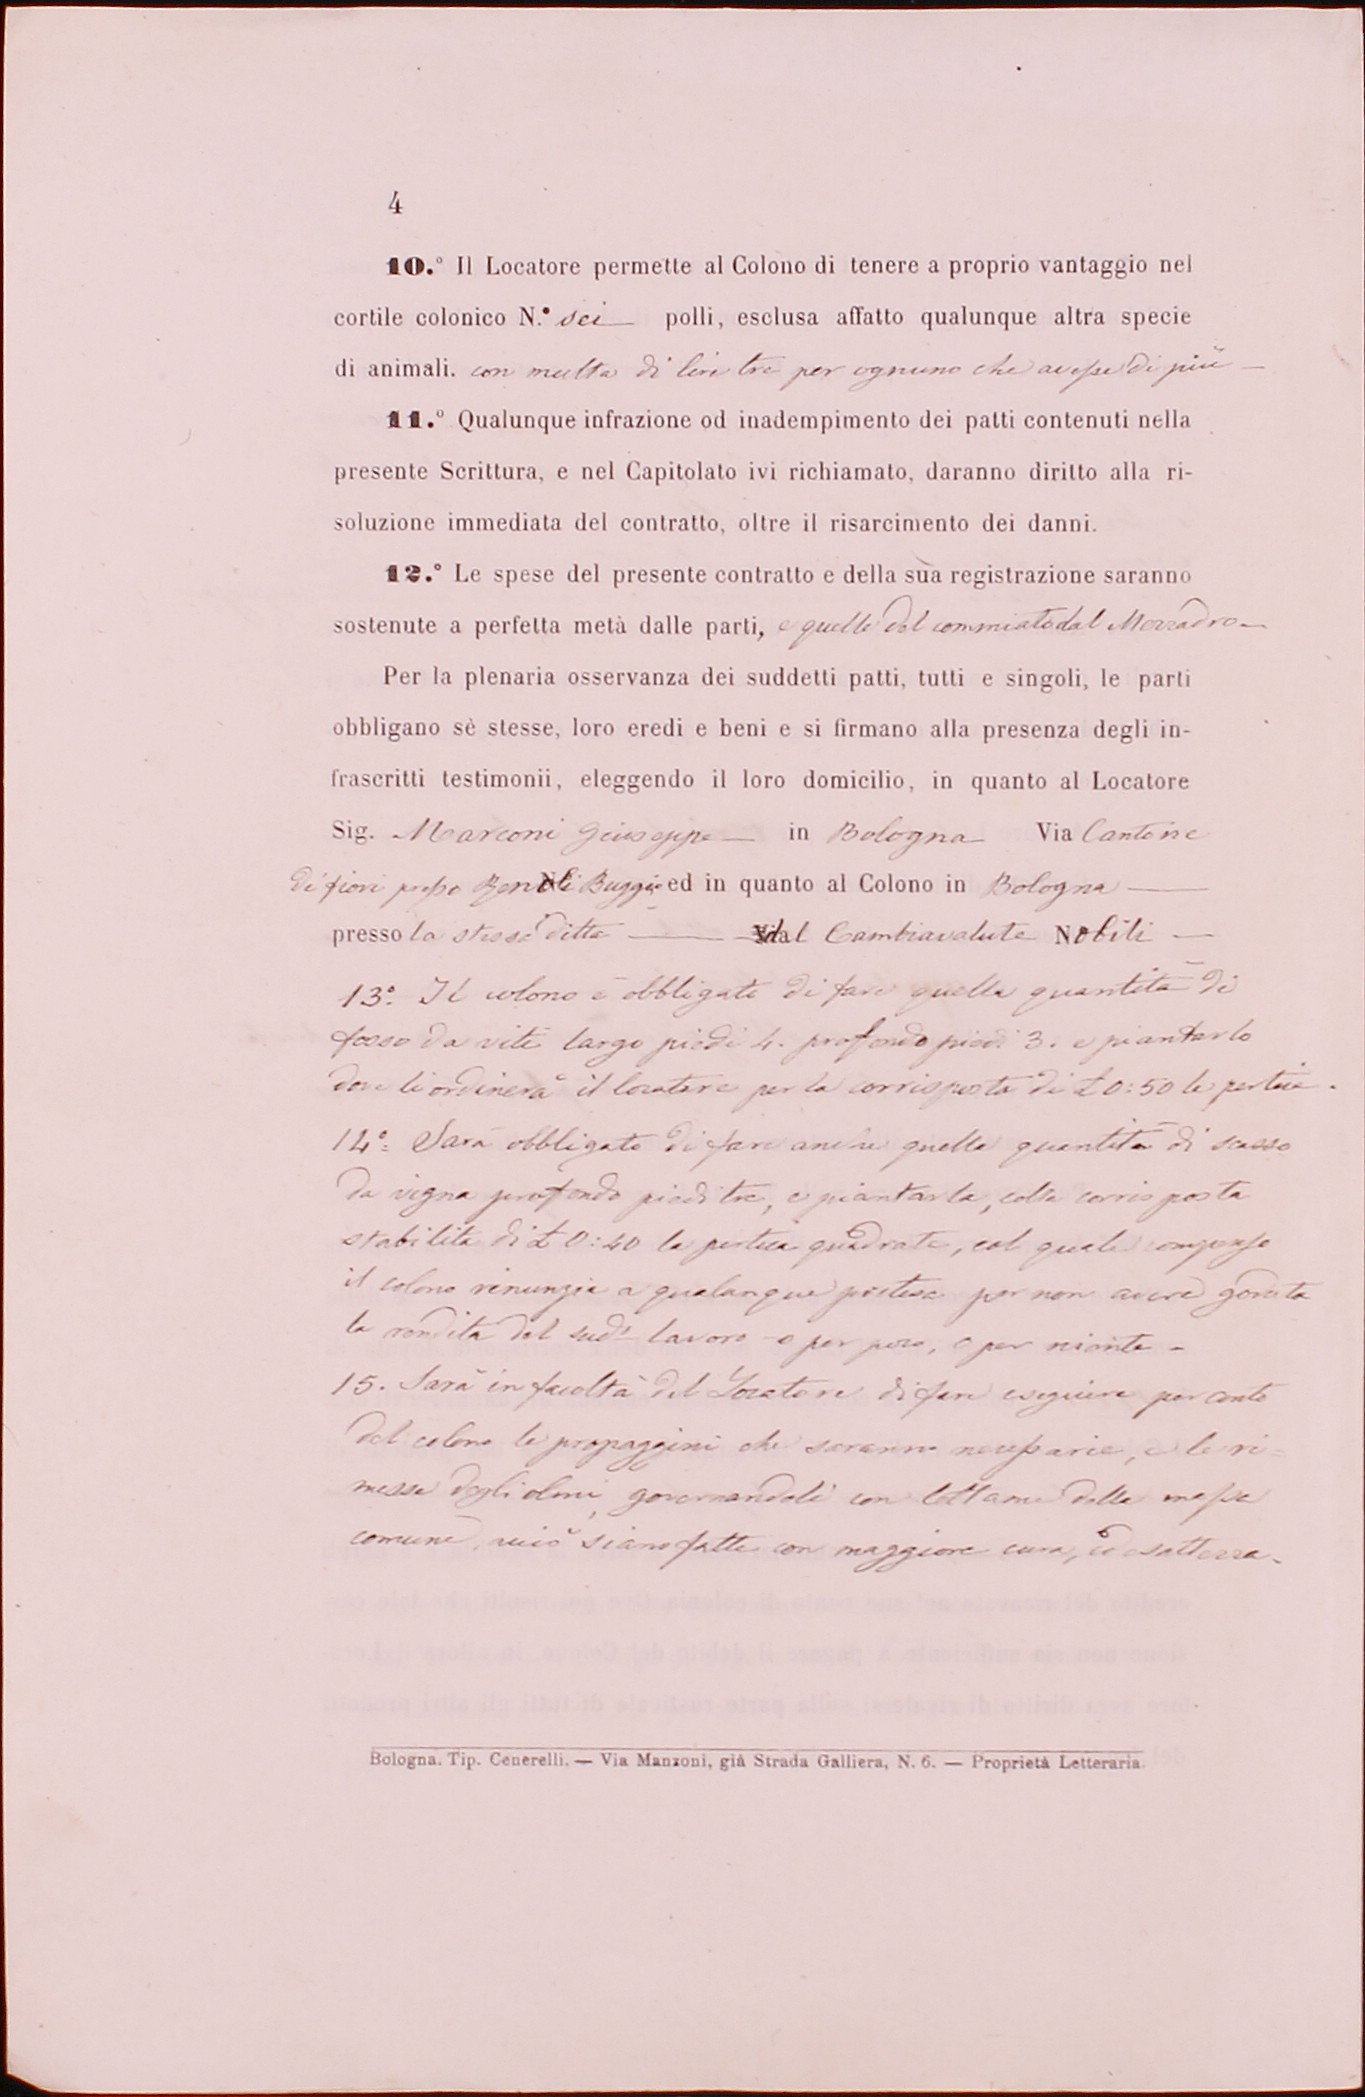 4
10.° Il Locatore permette al Colono di tenere a proprio vantaggio nel
cortile colonico N.° sei polli, esclusa affatto qualunque altra specie
di animali. con multa di lire tre per ognuno che avesse di più —
11.° Qualunque infrazione od inadempimento dei patti contenuti nella
presente Scrittura, e nel Capitolato ivi richiamato, daranno diritto alla ri-
soluzione immediata del contratto, oltre il risarcimento dei danni.
12.° Le spese del presente contratto e della sua registrazione saranno
sostenute a perfetta metà dalle parti, e quelle del commiato dal Mezzadro —
Per la plenaria osservanza dei suddetti patti, tutti e singoli, le parti
obbligano sè stesse, loro eredi e beni e si firmano alla presenza degli in-
frascritti testimonii, eleggendo il loro domicilio, in quanto al Locatore
Sig. Marconi Giuseppe — in Bologna Via Cantone
di fiori presso ed in quanto al Colono in Bologna —
presso la stessa ditta — dal Cambiavalute Nobili —
13.° Il colono è obbligato di fare quella quantità di
fosso da viti largo piedi 4. profondo piedi 3. e piantarlo
dove li ordinerà il locatore per la corrisposta di £ 0:50 la pertica.
14.° Sarà obbligato di fare anche quella quantità di scasso
da vigna profondo piedi tre, e piantarla, colla corrisposta
stabilita di £ 0:40 la pertica quadrata, col quale compenso
il colono rinunzia a qualunque pretesa per non avere goduta
la rendita del sud.° lavoro o per poco, o per niente —
15. Sarà in facoltà del Locatore di fare eseguire per conto
del colono le propaggini che saranno necessarie, e le ri=
messe degli olmi, governandoli con lettame della massa
comune, acciò siano fatte con maggiore cura, ed esattezza.
Bologna. Tip. Cenerelli. — Via Manzoni, già Strada Galliera, N. 6. — Proprietà Letteraria.